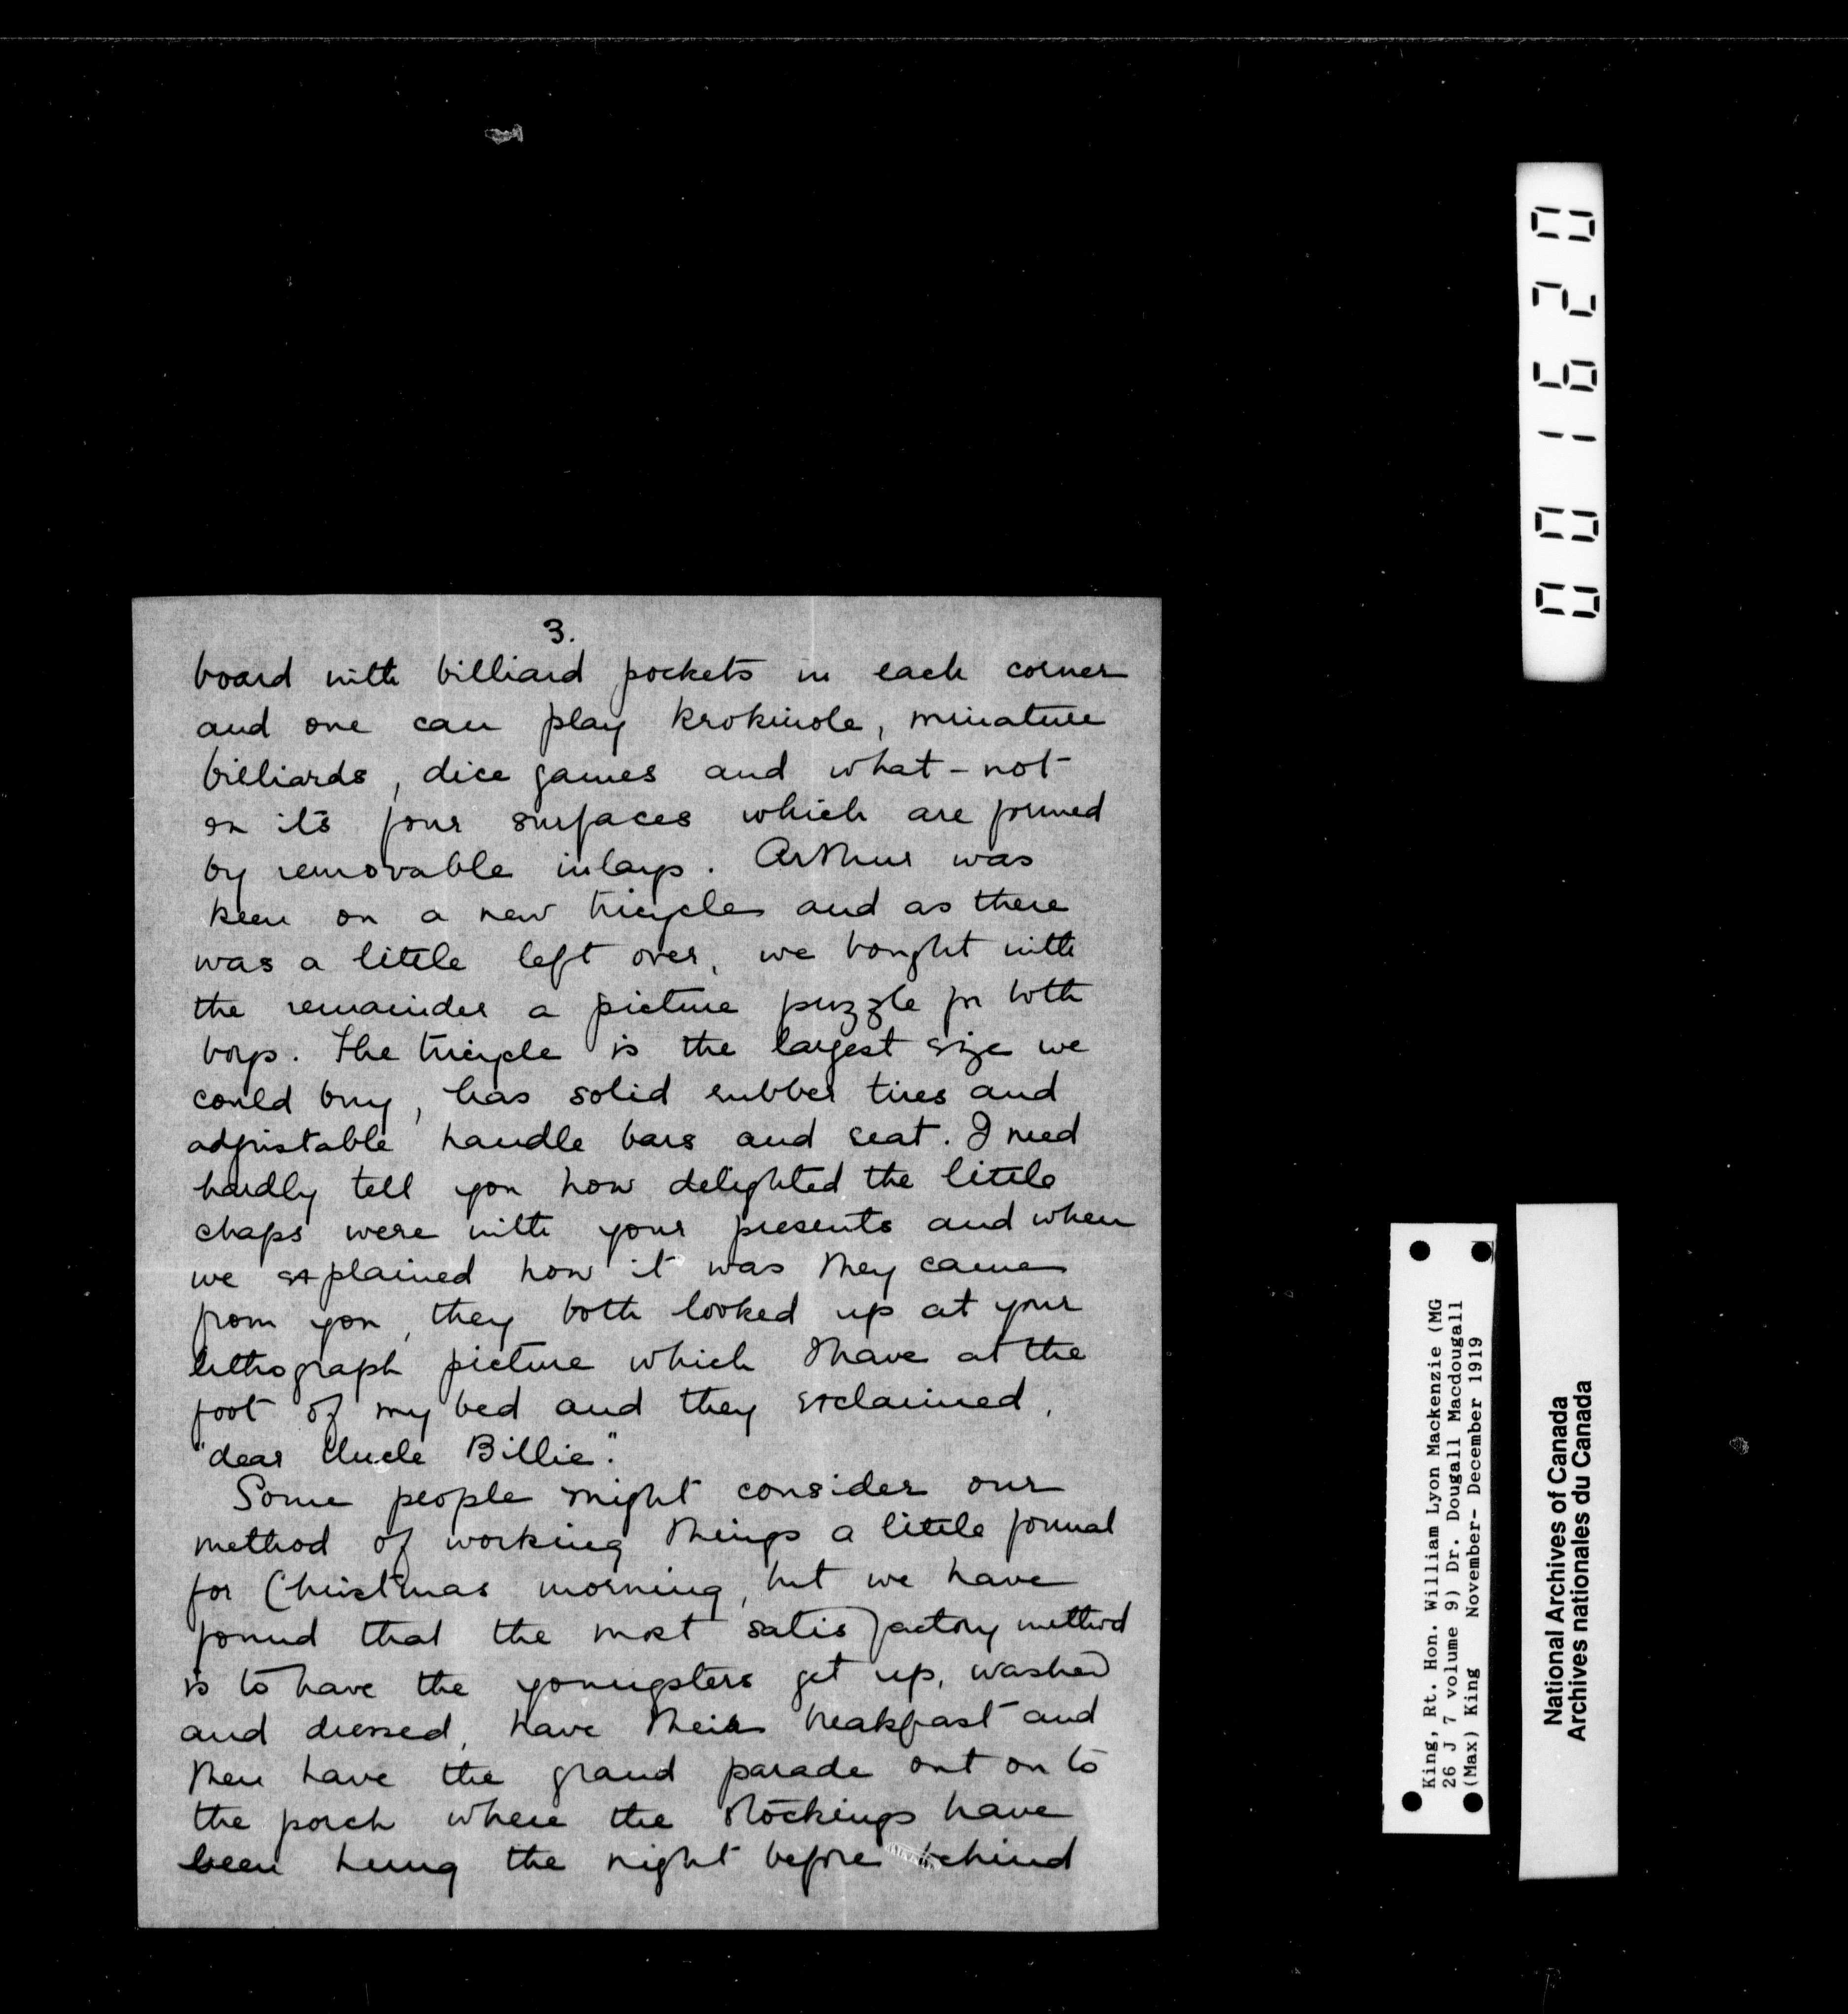 3.
board with billiard pockets in each corner
and one can play krokinole, minature
billiards, dice games and what-not
on its four surfaces which are formed
by removable inlays. Arthur was
keen on a new tricycle and as there
was a little left over, we bought with
the remainder a picture puzzle for both
boys. The tricycle is the largest size we
could buy, has solid rubber tires and
adjustable handle bars and seat. I need
hardly tell you how delighted the little
chaps were with your presents and when
we explained how it was they came
from you, they both looked up at your
lithograph picture which I have at the
foot of my bed and they exclaimed,
"dear Uncle Billie."
Some people might consider our
method of working things a little formal
for Christmas morning, but we have
found that the most satisfactory method
is to have the youngsters get up, washed
and dressed, have their breakfast and
then have the grand parade out on to
the porch where the stockings have
been hung the night before behind
001620
King, Rt. Hon. William Lyon Mackenzie (MG
26 J 7 volume 9) Dr. Dougall Macdougall
(Max) King November- December 1919
National Archives of Canada
Archives nationales du Canada